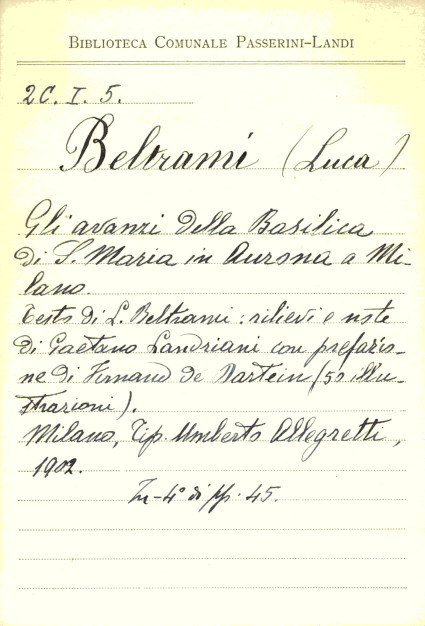 BIBLIOTECA COMUNALE PASSERINI-LANDI
2C. I. 5.
Beltrami (Luca)
Gli avanzi della Basilica
di S. Maria in Aurona a Mi-
lano.
Testo di L. Beltrami: rilievi e note
di Gaetano Landriani con prefazio-
ne di Fernand de Dartein (50 illu-
strazioni).
Milano, Tip. Umberto Allegretti,
1902.
In-4° di pp. 45.